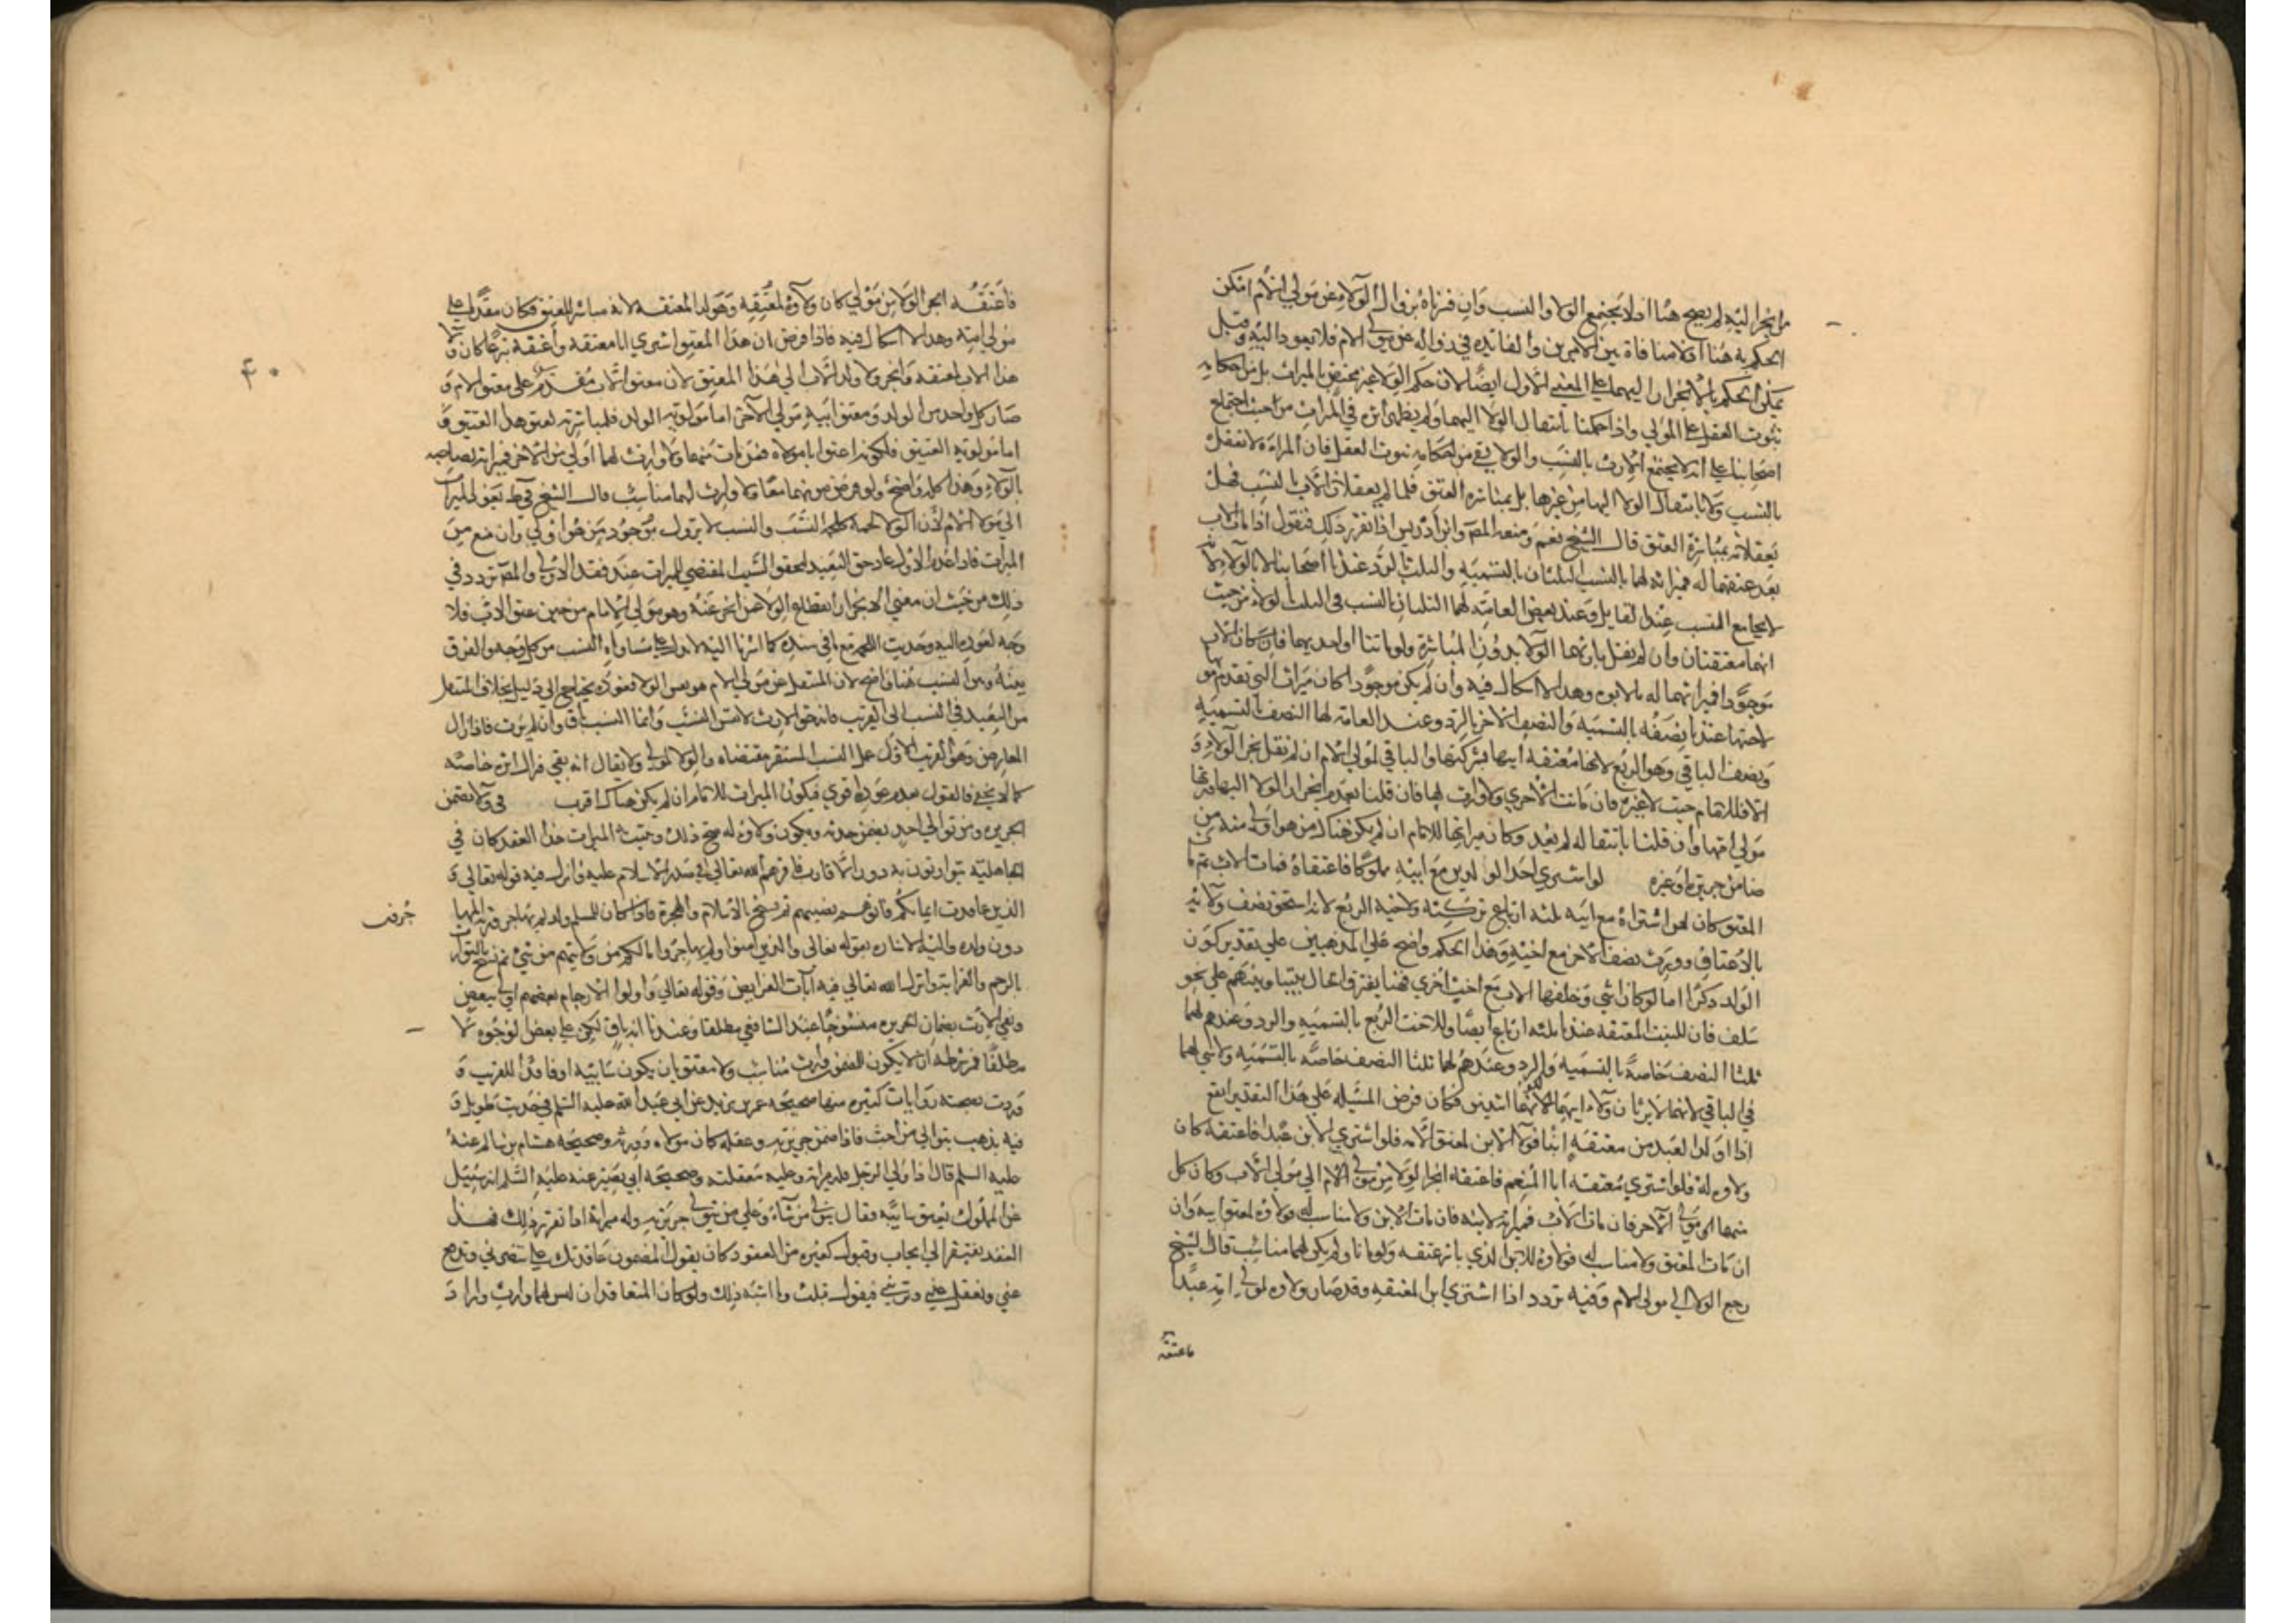 من انجر اليه لم يصح هنا اذ لا يجتمع الولاء والنسب وان فسرناه بزوال الولاء عن مولي الام امكن
الحكم به هنا اذ لا منافاة بين الامرين والفائدة في زواله عن مولي الام فلا يعود اليه وقيل
يمكن الحكم بالانجرار اليهما علي المعني الاول ايضا لان حكم الولاء غير مختص بالميراث بل من احكامه
ثبوت العقل علي المولي واذا حكمنا بانتقال الولا اليهما ولم يظهر اثره في الميراث من حيث اجتماع
اصحابنا علي انه لا يجتمع الارث بالنسب والولا بقي من احكامه ثبوت العقل فان المراة لا تعقل
بالنسب ولا بانتقال الولا اليها من غيرها بل بمباشرة العتق فلما لم يعقلا الاب بالنسب فهل
يعقلانه بمباشرة العتق قال الشيخ نعم ومنعه المصَ وابن ادريس اذا تقرر ذلك فنقول اذا مات الاب
بعد عتقهما له فميراثه لهما بالنسب الثلثان بالتسمية والثلث بالرد عندنا اصحابنا لا بالولاء لانه
لا يجامع النسب عندا لقايل وعند بعض العامة لهما الثلثان بالنسب في الثلث الولاء من حيث
انهما معتقتان وان لم نقل بارثهما الولا بدون المباشرة ولو ماتتا او احديهما فان كان الاب
موجودا فميراثهما له بالابوه وهذا لا اشكال فيه وان لم يكن موجودا كان ميراث التي تقدم موتها
لاختها عندنا نصفه بالتسمية والنصف الاخر بالرد وعند العامة لها النصف بالتسمية
ونصف الباقي وهو الربع لانها معتقة ابيها شركتها والباقي لمولي الام ان لم نقل بجر الولاء و
الا فللامام حيث لا غيره فان ماتت الاخري ولا وارث لها فان قلنا بعدم انجرار الولا اليها ورثها
مولي امها وان قلنا بانتقاله لم يعد وكان ميراثها للامام ان لم يكن هناك من هو اولي منه من
ضامن جريرة او غيره لو اشتري احد الولدين مع ابيه مملوكا فاعتقاه فمات الاب ثم مات
المعتق كان لمن اشتراه مع ابيه ثلثة ارباع تركته ولاخيه الربع لانه استحق نصف ولائه
بالاعتاق وورث نصف الاخر مع اخيه وهذا الحكم واضح علي المذهبين علي تقدير كون
الولد ذكرا اما لو كان انثي وخلفها الاب مع اخت اخري فهنا يفترق الحال بيننا وبينهم علي نحو
سلف فان للبنت المعتقة عندنا ثلثة ارباع ايضا وللاخت الربع بالتسمية والرد وعندهم لهما
ثلثا النصف خاصة بالتسمية والرد وعندهم لهما ثلثا النصف خاصة بالتسمية ولا شي لهما
في الباقي لانهما لا يرثان ولاء ابيهما لكونهما انثيين فكان فرض المسئلة علي هذا التقدير انفع
اذا اولد العبد من معتقه ابنا فولاء الابن لمعتق الامه فلو اشتري الابن عبدا فاعتقه كان
ولاوه له فلو اشتري معتقه ابا المنعم فاعتقه انجر الولاء من مولي الام الي مولي الاب وكان كل
منهما مولي الاخر فان مات الاب فميراثه لابنه فان مات الابن ولا مناسب له فولاوه لمعتق ابيه وان
ان مات المعتق ولا مناسب له فولاوه للابن الذي باشر عتقه ولو ماتا ولم يكن لهما مناسب قال الشيخ
رجع الولا الي مولي الام وفيه تردد اذا اشتري ابن المعتقه وقد صار ولاوه لمولي امه عبدا
فاعتقه
فاعتقه انجر الولاء من مولي كان ولاوه لمعتقه وهو ولد المعتقه لانه مباشر للعتق فكان مقدما علي
مولي امه وهذا لا اشكال فيه فاذا فرض ان هذا المعتق اشتري ابا معتقه واعتقه تبرعا كان ولا
هذا الاب لمعتقه وانجر ولا ولد الاب الي هذا المعتق لان معتق الاب مقدم علي معتق الام و
صار كل واحد من الولد ومعتق ابيه مولي الاخر اما مولوية الولد فلمباشرته لعتق هذا العتيق و
اما مولوية العتيق فلكونه اعتق ابا مولاه فمن مات منهما ولا وارث لهما اولي من الاخر فميراثه لصاحبه
بالولاء وهذا كله واضح ولو فرض موتهما معا ولا وارث لهما مناسب قال الشيخ في ط يعود الميراث
الي مولا الام لان الولا لحمة كلحمة النسب والنسب لا يزول بوجود من هو اولي وان منع من
الميراث فاذا عدم الاولي عاد حق البعيد لتحقق السبب المقتضي للميراث عند فقد الاولي والمصَ تردد في
ذلك من حيث ان معني الانجرار انقطاع الولا عن انجر عنه وهو مولي الام من حين عتق الاب فلا
وجه لعوده اليه وحديث اللحمة مع ما في سنده كما اشرنا اليه لا يدل علي مساواه النسب من كل وجه والفرق
بينه وبين النسب هنا واضح لان المنتقل عن مولي الام هو نفس الولا فعوده يحتاج الي دليل بخلاف المنتقل
من البعيد في النسب الي القريب فانه حق الارث لا نفس النسب وانما النسب باق وان لم يرث فاذا زال
المعارض وهو القريب الاول عمل النسب المستقر مقتضاه والولا لمولي ولا يقال انه بقي فزال اثره خاصة
كما لا يخفي فالقول بعدم عوده قوي فيكون الميراث للامام ان لم يكن هناك اقرب في ولا تضمن
الجريره ومن توالي احد يضمن حدثه ويكون ولاوه له صح ذلك ويثبت به الميراث هذا العقد كان في
الجاهلية يتوارثون به دون الاقارب فاقرهم الله تعالي في صدر الاسلام عليه وانزل فيه قوله تعالي و
الذين عاقدت ايمانكم فاتوهم نصيبهم ثم نسخ بالاسلام والهجرة فاذا كان للمسلم ولد لم يهاجر ورثه المهاجرون
دون ولده واليه الاشاره بقوله تعالي والذين امنوا ولم يهاجروا مالكم من ولايتهم من شيء ثم نسخ بالتوارث
بالرحم والقرابة وانزل الله تعالي فيه آيات الفرايض وقوله تعالي واولوا الارحام بعضهم اولي ببعض
وبقي الارث بضمان الجريره منسوخا عند الشافعي مطلقا وعندنا انه باق لكن علي بعض الوجوه لا
مطلقا فشرطه ان لا يكون للمضمون وارث مناسب ولا معتق بان يكون سايبه او فاقدا للقريب و
وردت بصحته روايات كثيره منها صحيحه عمر بن يزيد عن ابي عبد الله عليه السلم في حديث طويل و
فيه يذهب يتوالي من احب فاذا ضمن جريرته وعقله كان مولاه ويرثه وصحيحه هشام بن سالم عنه
عليه السلم قال اذا والي الرجل فله ميراثه وعليه معقلته وصحيحه ابي بصير عنه عليه السلم انه سئل
عن المملوك يعتق سايبه فقال يتولي من شاء وعلي من تولي جريرته وله ميراثه اذا تقرر ذلك فهذا
العقد يفتقر الي ايجاب وقبول كغيره من العقود كان يقول المضمون عاقدتك علي تنصرني وتدفع
عني وتعقل عني وترثني فيقول قبلت وما اشبه ذلك ولو كان المتعاقدان ليس لهما وارث واراد